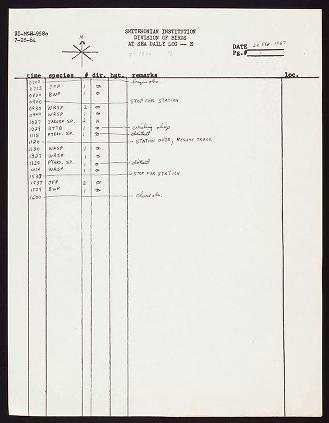 SI-MNH-958e
7-25-64
SMITHSONIAN INSTITUTION
DIVISION OF BIRDS
AT SEA DAILY LOG — E
N
DATE 26 FEB. 1967
Pg.# 1
time species # dir. hgt. remarks loc.
0700
0715 JFP 1
0800 BWP 1
0900 STOP FOR STATION
0930 WRSP 2
0940 WRSP 1
1027 2 N
1029 RTTB 1 circling ship
1118 PTERO. SP. 1 distant
1120 STATION OVER, RESUME TRACK
1130 WRSP 1
1327 WRSP 1
1329 PTERO. SP. 1 distant
1414 WRSP 1
STOP FOR STATION
1537 JFP 2
1559 BWP 1
1600 close obs.